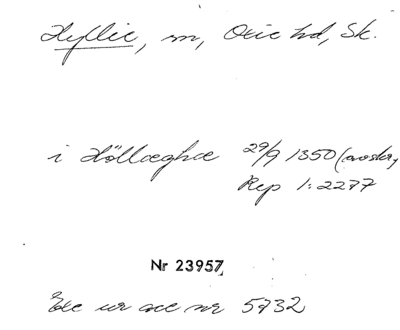 Hyllie, sn, Oxie hd, Sk.
i Höllæghæ 29/9 1350 (avskr,
Rep 1: 2277
Nr 23957
Exc ur acc nr 5732